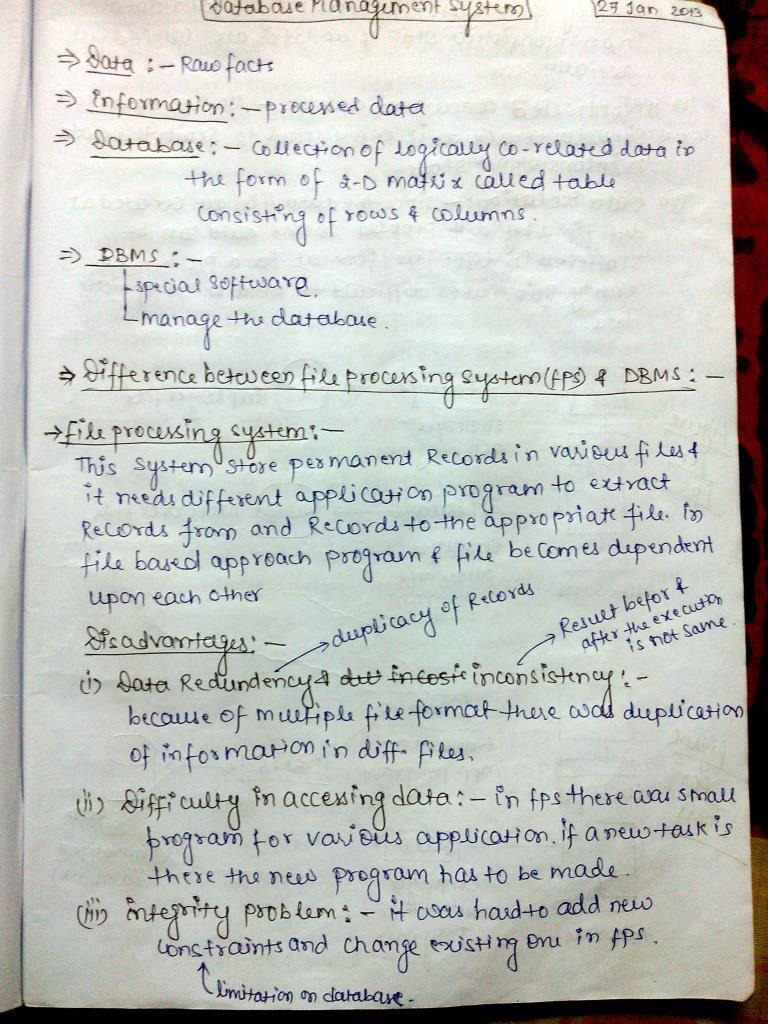 Database Management System
27 Jan 2013
⇒ Data :- Raw facts
⇒ information :- processed data
⇒ Database :- Collection of logically co-related data in
the form of 2-D matrix called table
consisting of rows & columns.
⇒ DBMS :-
special software.
manage the database.
⇒ Difference between file processing system (fps) & DBMS :-
→ file processing system :-
This system store permanent Records in various files &
it needs different application program to extract
Records from and Records to the appropriate file. in
file based approach program & file becomes dependent
upon each other
Disadvantages :-
→ duplicacy of Records
→ Result befor &
after the execution
is not same.
(i) Data Redundency & inconsistency :-
because of multiple file format there was duplication
of information in diff. files.
(ii) Difficulty in accessing data :- in fps there was small
program for various application. if a new task is
there the new program has to be made.
(iii) integrity problem :- it was hard to add new
constraints and change existing one in fps.
limitation on database.